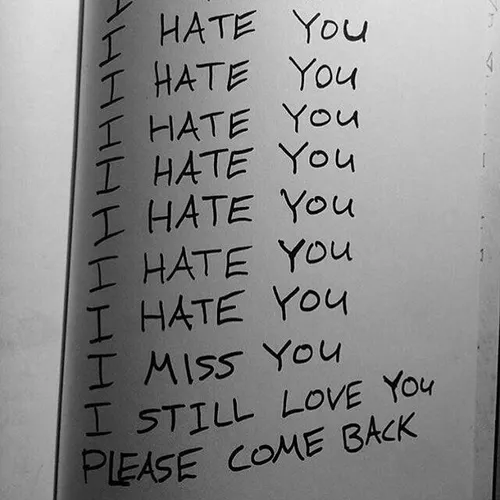 I
I HATE YOU
I HATE YOU
I HATE YOU
I HATE YOU
I HATE YOU
I HATE YOU
I HATE YOU
I MISS YOU
I STILL LOVE YOU
PLEASE COME BACK